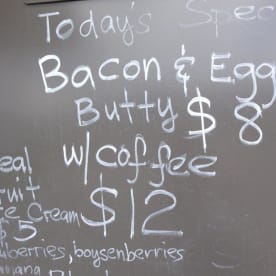 Today's Spec
Bacon & Egg
Butty $8
w/coffee
$12
eal
ruit
e Cream
$5
berries, boysenberries